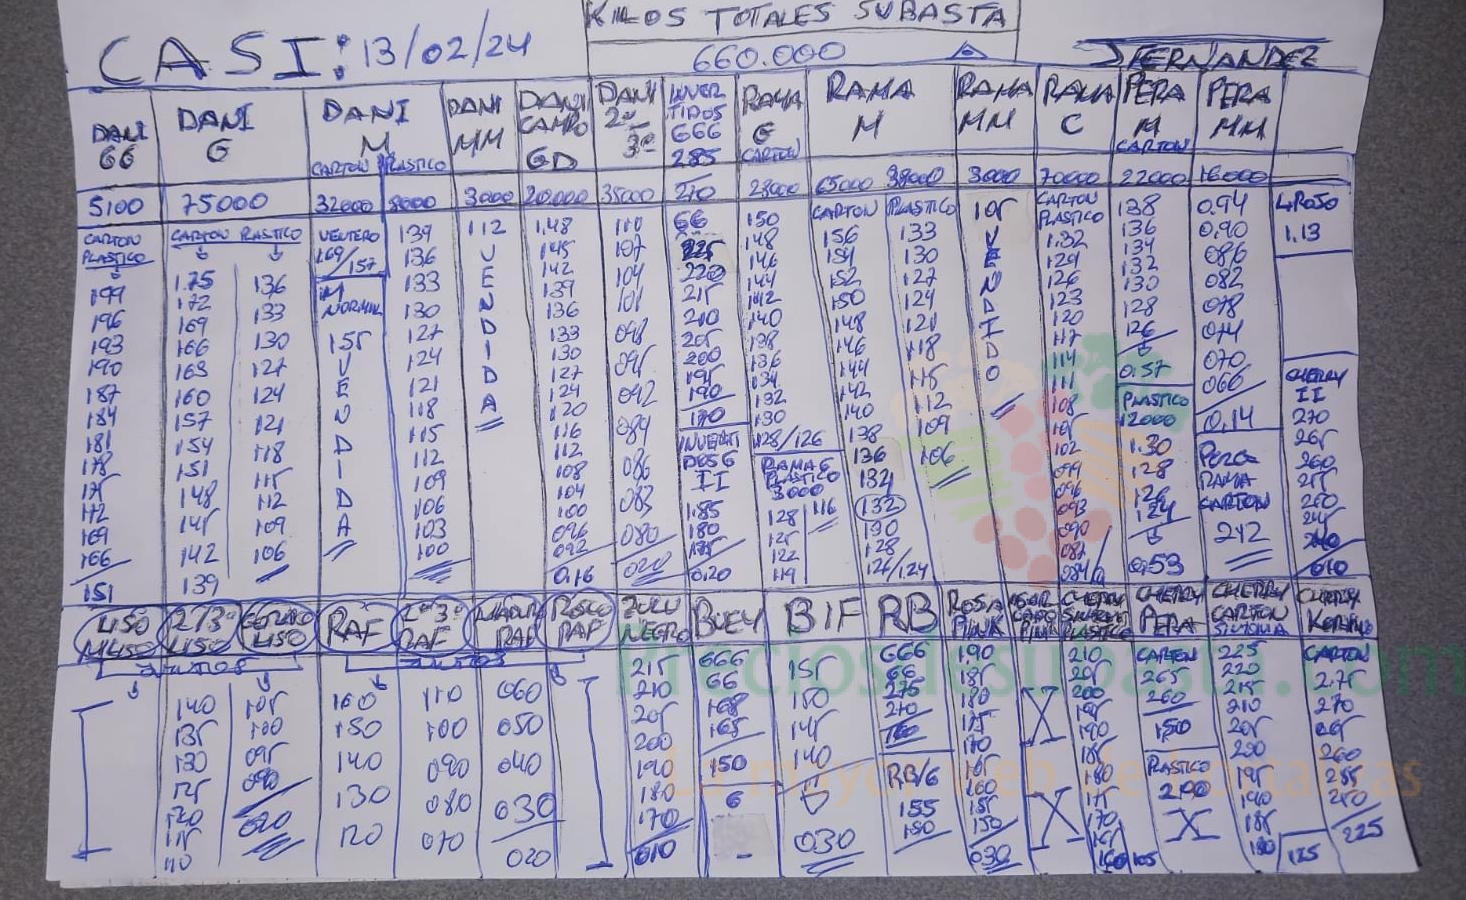 KILOS TOTALES SUBASTA
CASI: 13/02/24
660.000
J FERNANDEZ
DANI GG
DANI G
DANI M
CARTON PLASTICO
DANI MM
DANI CAMPO GD
DANI 2ª 3ª
INVER TIDOS 666 285
RAMA G CARTON
RAMA M
RAMA MM
RAMA C
PERA M CARTON
PERA MM
5100
75000
32000
8000
3000
20.000
35000
210
28000
65000
38000
3000
70000
22000
16000
CARTON PLASTICO
199
196
193
190
187
184
181
178
175
172
169
166
151
CARTON PLASTICO
1.75 136
172 133
169 130
166 127
163 124
160 121
157 118
154 115
151 112
148 109
145 106
142
139
VENTERO
169/157
M
NORMAL
155
VENDIDA
139
136
133
130
127
124
121
118
115
112
109
106
103
100
112
VENDIDA
1.48
145
142
139
136
133
130
127
124
120
116
112
108
104
100
096
092
0.16
110
107
104
101
098
095
092
089
086
083
080
020
66
225
220
215
210
205
200
195
190
170
INVERTI
DOS G
II
1.85
180
175
0.20
150
148
146
144
142
140
138
136
134
132
130
128/126
RAMA G
PLASTICO
3000
128 116
125
122
119
CARTON PLASTICO
156 133
154 130
152 127
150 124
148 121
146 118
144 115
142 112
140 109
138 106
136
134
132
130
128
126/124
105
VENDIDO
CARTON
PLASTICO
1.32
129
126
123
120
117
114
111
108
105
102
099
096
093
090
087
084/
138
136
134
132
130
128
126
0.57
PLASTICO
12000
1.30
128
126
124
0.53
0.94
0.90
086
082
078
074
070
066
0.14
PERA
RAMA
CARTON
212
L ROJO
1.13
CHERRY
II
270
265
260
255
250
245
240
010
LISO
2ª/3ª LISO
LISO
RAF
2ª 3ª RAF
RAF
ROSCO RAF
ZULU NEGRO
BUEY
BIF
RB
ROSA PINK
PINK
CHERRY
PLASTICO
CHERRY PERA
CHERRY CARTON
CHERRY KOPINO
JUNTOS
JUNTOS
140
135
130
125
120
115
110
105
100
095
090
020
160
150
140
130
120
110
100
090
080
070
060
050
040
030
020
215
210
205
200
190
180
170
010
666
66
168
165
150
G
155
150
145
140
030
666
66
275
210
160
RB/G
155
150
190
185
180
175
170
165
160
155
150
030
X
X
210
205
200
195
190
185
180
175
170
165
160
105
CARTON
265
260
150
PLASTICO
200
X
225
220
215
210
205
200
195
190
185
180
125
CARTON
2.75
270
265
260
255
250
225
Preciosdesubasta.com